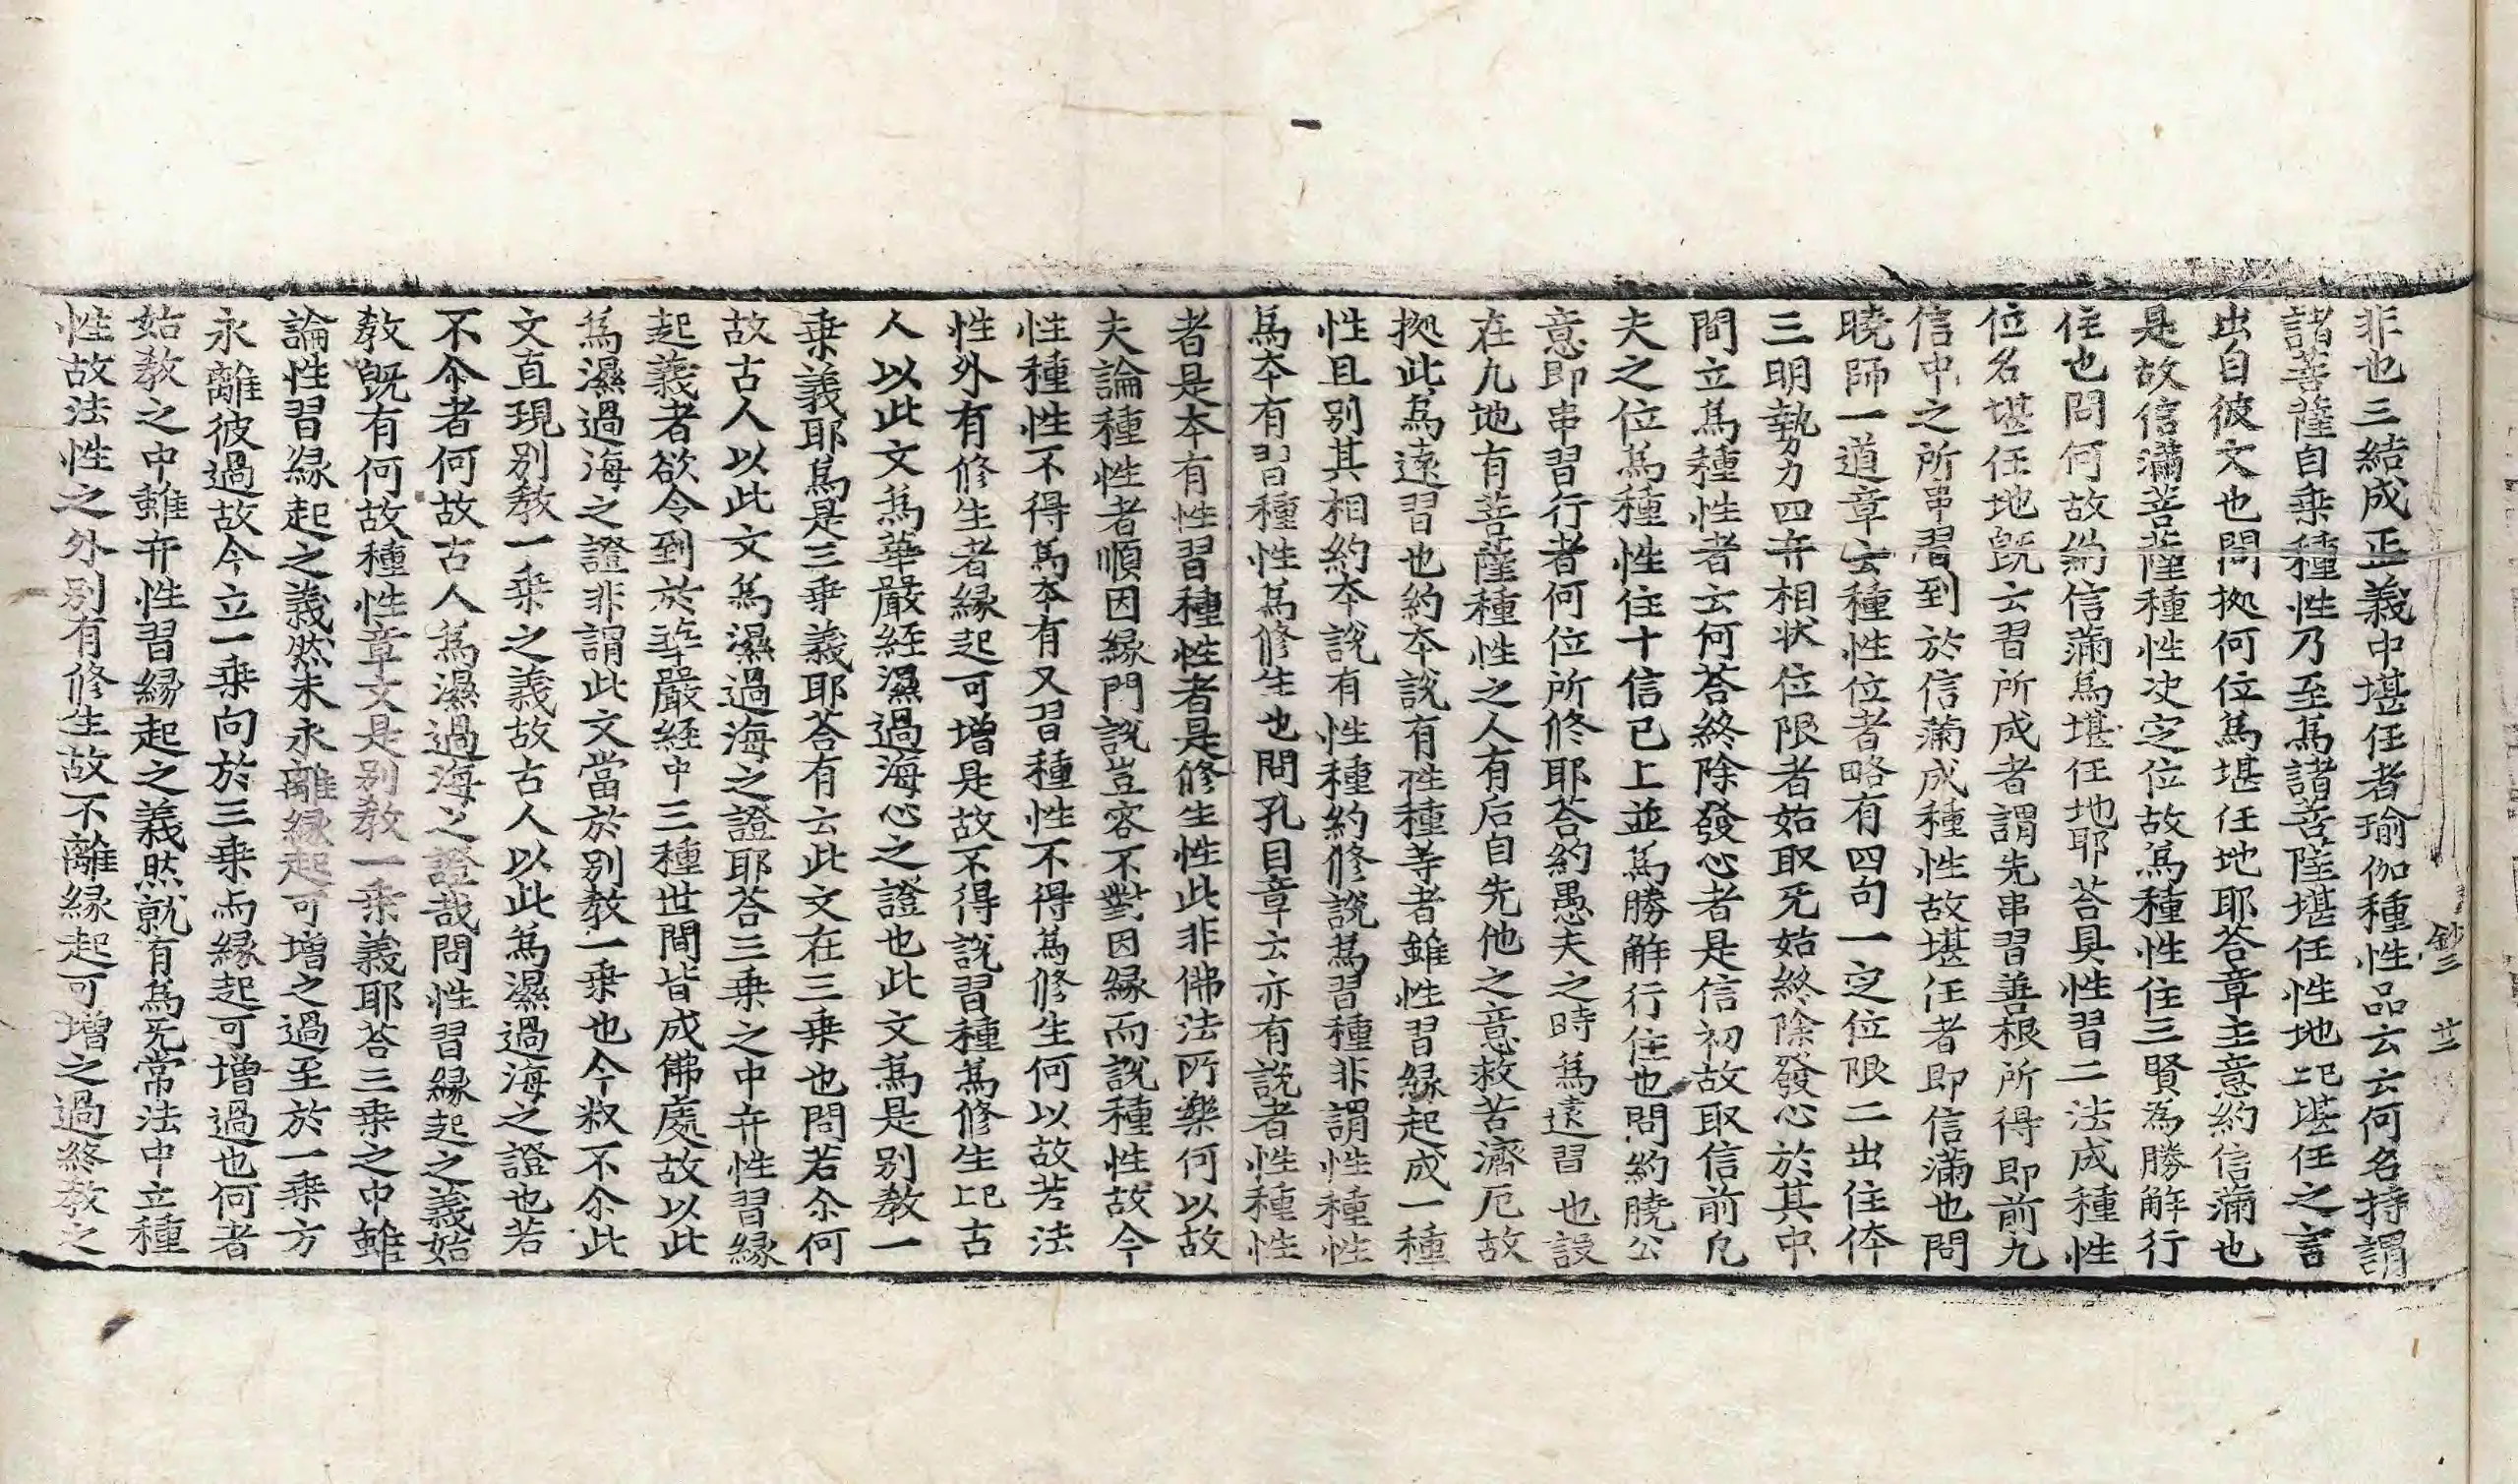 鈔三 廿二
非也三結成正義中堪任者瑜伽種性品云云何名持謂
諸菩薩自乗種性乃至爲諸菩薩堪任性地上已堪任之言
出自彼文也問拠何位爲堪任地耶荅章主意約信滿也
是故信滿菩薩種性决定位故爲種性住三賢為勝解行
住也問何故約信滿爲堪任地耶荅具性習二法成種性
位名堪任地旣云習所成者謂先串習善根所得即前九
信中之所串習到於信滿成種性故堪任者即信滿也問
曉師一道章云種性位者略有四句一定位限二出住体
三明勢力四弁相状位限者始取无始終除發心於其中
間立爲種性者云何荅終除發心者是信初故取信前凢
夫之位爲種性住十信已上並爲勝解行住也問約曉公
意即串習行者何位所修耶荅約愚夫之時爲遠習也設
在九地有菩薩種性之人有后自先他之意救苦濟厄故
拠此爲遠習也約本說有性種等者雖性習縁起成一種
性且別其相約本說有性種約修說爲習種非謂性種性
爲本有習種性爲修生也問孔目章云亦有說者性種性
者是本有性習種性者是修生性此非佛法所樂何以故
夫論種性者順因縁門說豈容不對因縁而說種性故今
性種性不得爲本有又習種性不得爲修生何以故若法
性外有修生者縁起可增是故不得說習種爲修生上已古
人以此文爲華嚴經濕過海心之證也此文爲是别教一
乗義耶爲是三乗義耶荅有云此文在三乗也問若尒何
故古人以此文爲濕過海之證耶荅三乗之中弁性習縁
起義者欲令到於華嚴經中三種世間皆成佛處故以此
爲濕過海之證非謂此文當於别教一乗也今叙不尒此
文直現别教一乗之義故古人以此爲濕過海之證也若
不尒者何故古人爲濕過海之證哉問性習縁起之義始
教旣有何故種性章文是别教一乗義耶荅三乗之中雖
論性習縁起之義然未永離縁起可增之過至於一乗方
永離彼過故今立一乗向於三乗而縁起可增過也何者
始教之中雖弁性習縁起之義然就有爲无常法中立種
性故法性之外别有修生故不離縁起可增之過終教之